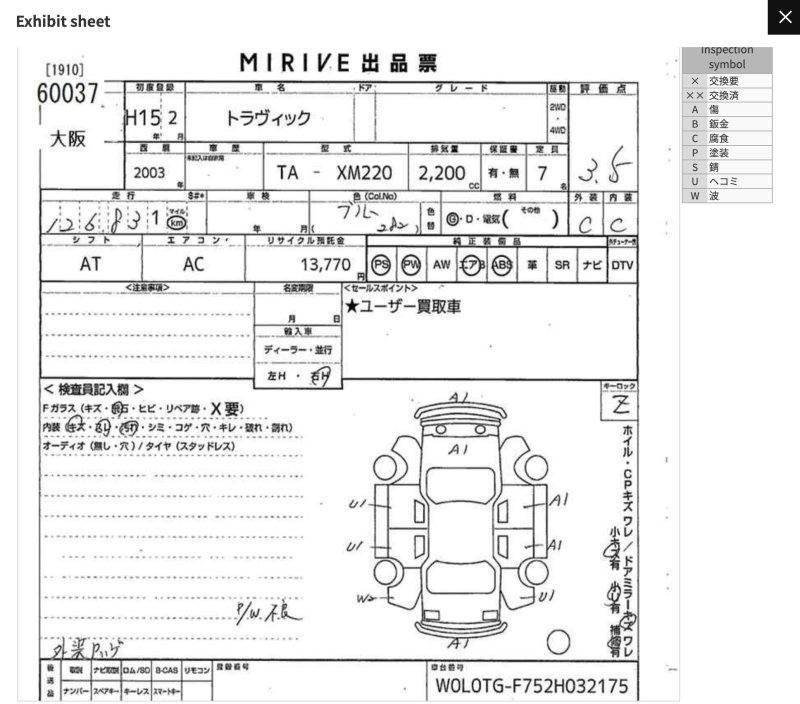 Exhibit sheet
Inspection
symbol
× 交換要
×× 交換済
A 傷
B 鈑金
C 腐食
P 塗装
S 錆
U ヘコミ
W 波
[1910]
60037
大阪
MIRIVE 出品票
初度登録 車名 ドア グレード 駆動 評価点
H15 2 トラヴィック 2WD
年 月 ・
4WD
西暦 車歴 型式 排気量 保証書 定員
2003 TA - XM220 2,200 有・無 7 3.5
年 CC 名
走行 $#* 車検 色(Col.No) 燃料 外装 内装
126831 マイル km 年 月( ブルー 282) 色替 G・D・電気( その他 ) C C
シフト エアコン リサイクル預託金 純正装備品
AT AC 13,770円 PS PW AW エアB ABS 革 SR ナビ DTV
<注意事項> 名変期限 <セールスポイント>
★ユーザー買取車
月 日
輸入車
ディーラー・並行
左H ・ 右H
< 検査員記入欄 > キーロック
Z
Fガラス (キズ・飛石・ヒビ・リペア跡・X要)
内装 (キズ・ヨレ・汚れ・シミ・コゲ・穴・キレ・破れ・割れ)
オーディオ (無し・穴) / タイヤ (スタッドレス)
A1
A1
U1 A1
U1 A1
W2 U1
A1
ホイル・CPキズ ワレ / ドアミラーキズ ワレ
小キズ有 小U有 補修有
P/W 不良
外装
後送品 取説 ナビ取説 ロム/SD B-CAS リモコン 登録番号 車台番号
ナンバー スペアキー キーレス スマートキー W0L0TG-F752H032175